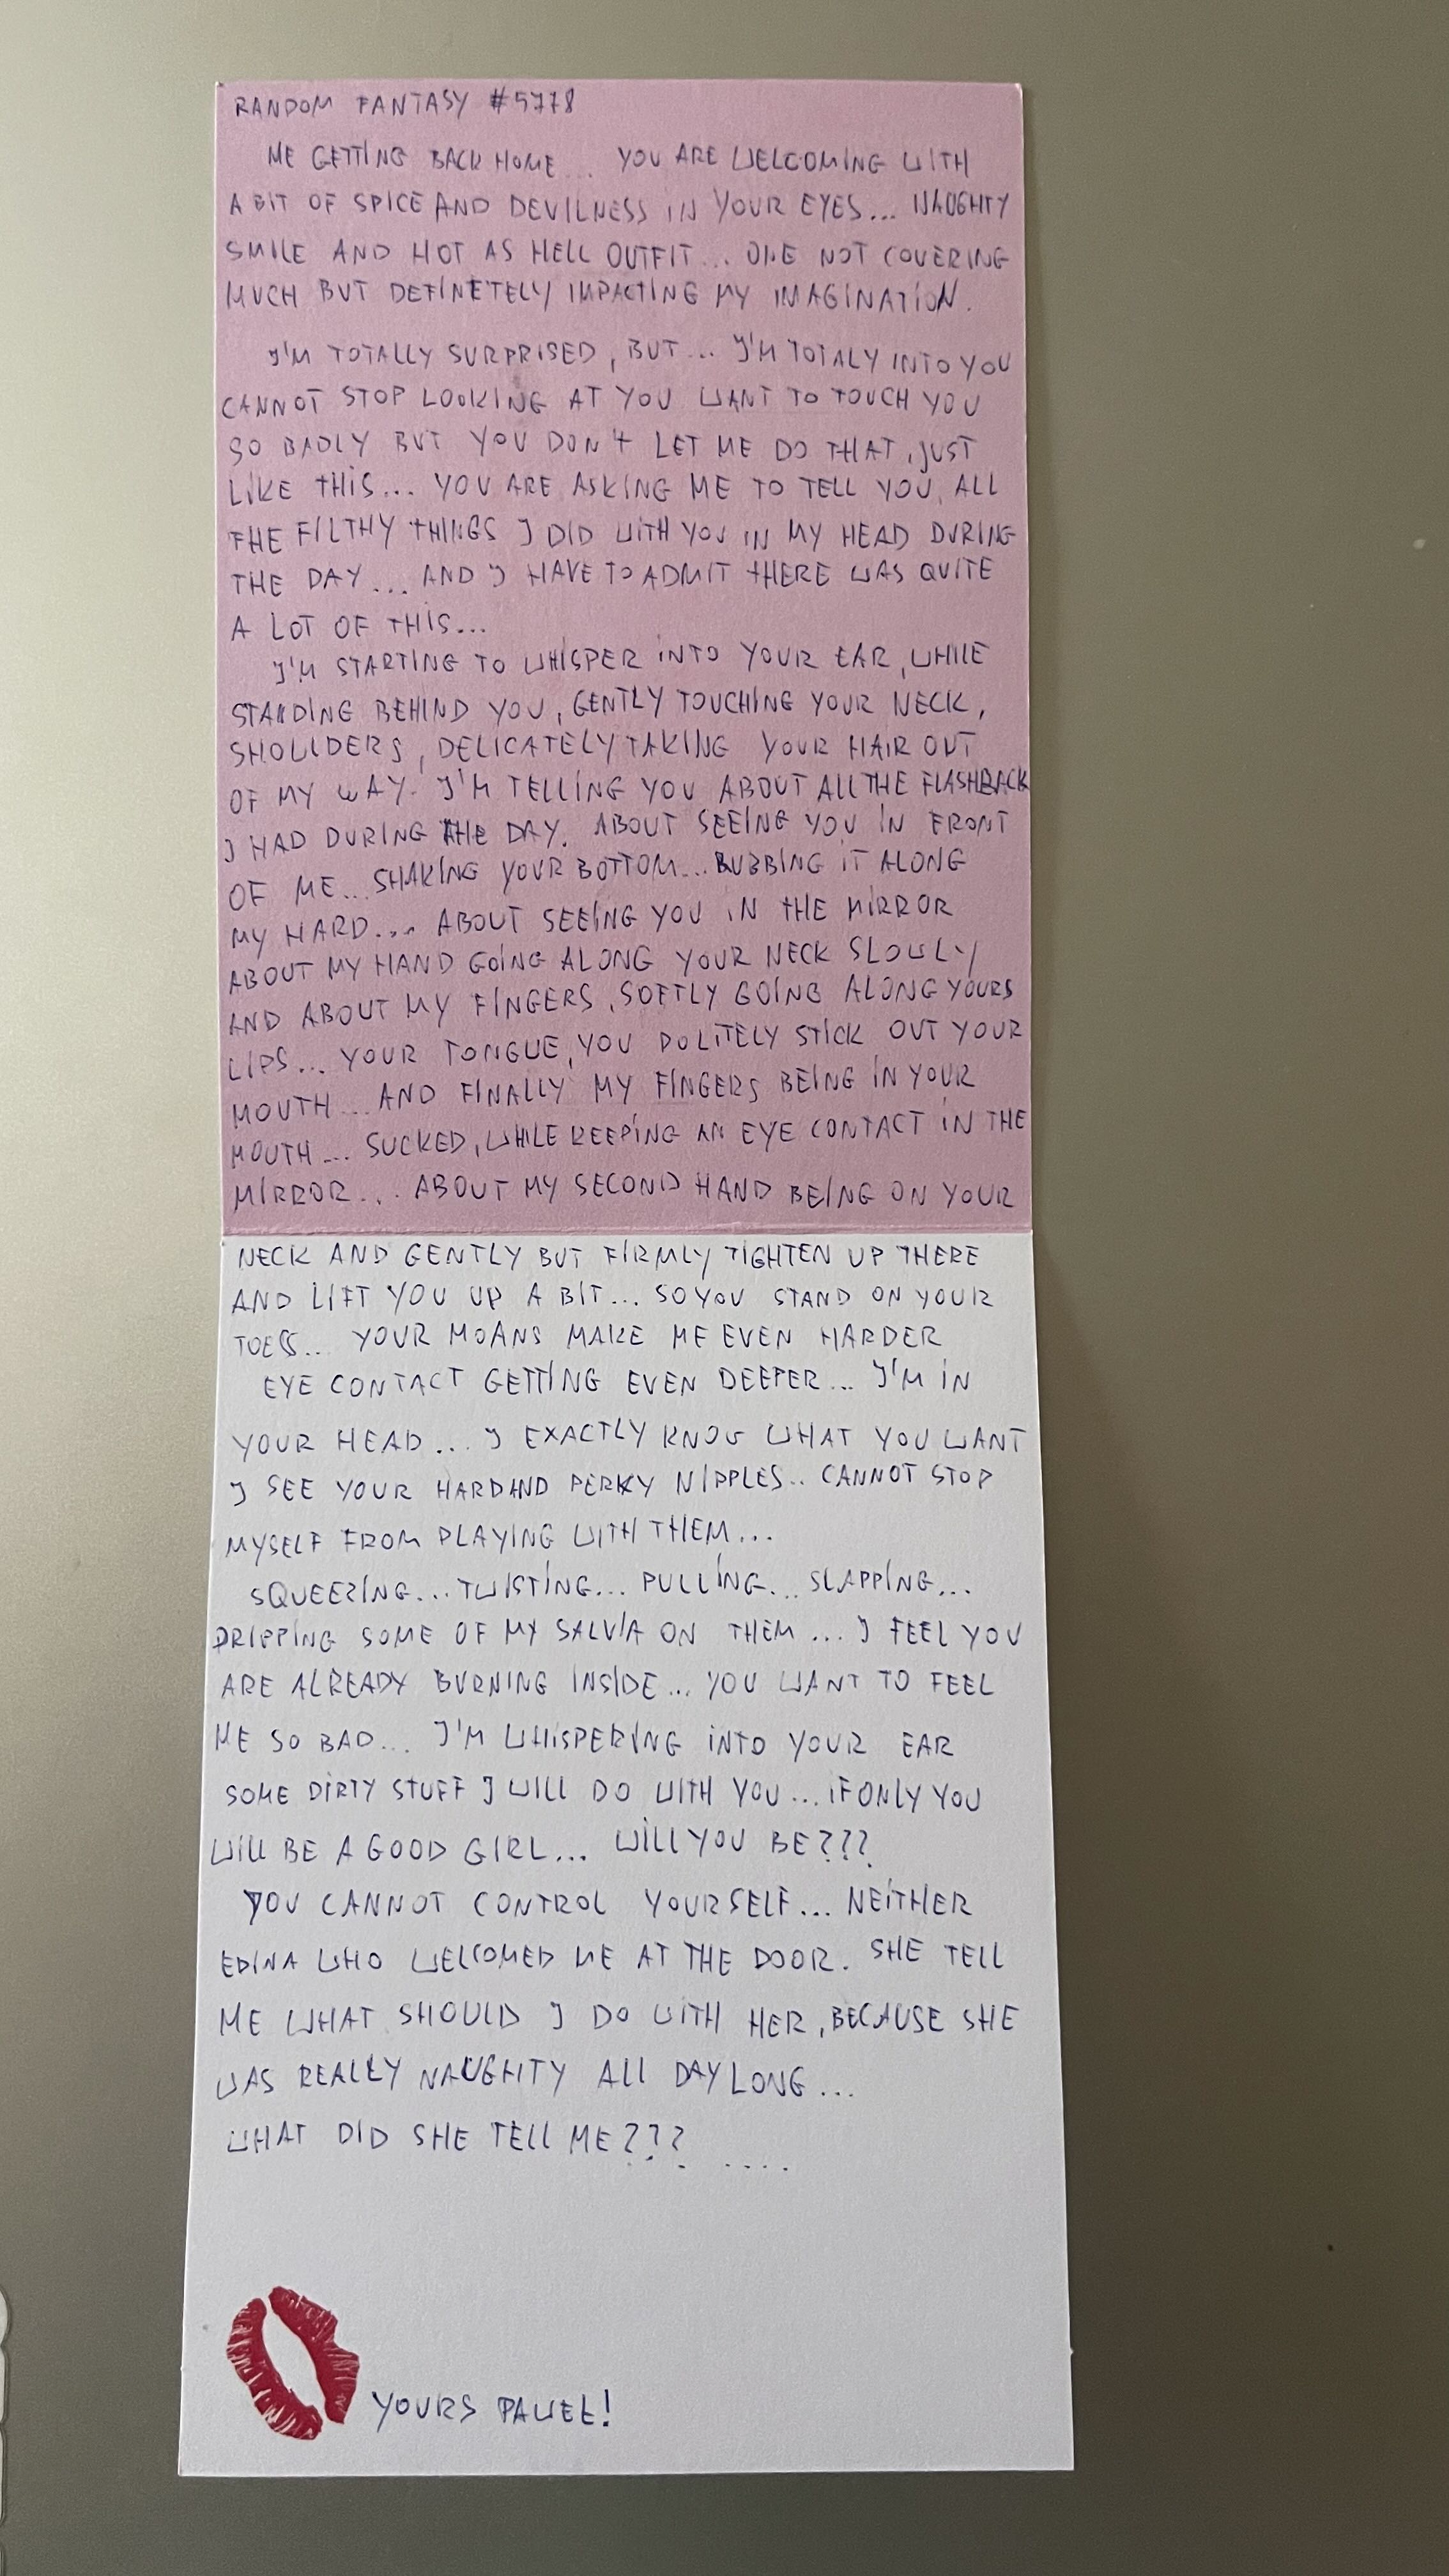 RANDOM FANTASY #5778
ME GETTING BACK HOME... YOU ARE WELCOMING WITH
A BIT OF SPICE AND DEVILNESS IN YOUR EYES... NAUGHTY
SMILE AND HOT AS HELL OUTFIT... ONE NOT COVERING
MUCH BUT DEFINETELY IMPACTING MY IMAGINATION.
I'M TOTALLY SURPRISED, BUT... I'M TOTALY INTO YOU
CANNOT STOP LOOKING AT YOU WANT TO TOUCH YOU
SO BADLY BUT YOU DON't LET ME DO THAT, JUST
LIKE THIS... YOU ARE ASKING ME TO TELL YOU ALL
THE FILTHY THINGS I DID WITH YOU IN MY HEAD DURING
THE DAY... AND I HAVE TO ADMIT THERE WAS QUITE
A LOT OF THIS...
I'M STARTING TO WHISPER INTO YOUR EAR, WHILE
STANDING BEHIND YOU, GENTLY TOUCHING YOUR NECK,
SHOULDERS, DELICATELY TAKING YOUR HAIR OUT
OF MY WAY. I'M TELLING YOU ABOUT ALL THE FLASHBACK
I HAD DURING THE DAY. ABOUT SEEING YOU IN FRONT
OF ME... SHAKING YOUR BOTTOM... RUBBING IT ALONG
MY HARD... ABOUT SEEING YOU IN THE MIRROR
ABOUT MY HAND GOING ALONG YOUR NECK SLOWLY
AND ABOUT MY FINGERS, SOFTLY GOING ALONG YOURS
LIPS... YOUR TONGUE, YOU POLITELY STICK OUT YOUR
MOUTH... AND FINALLY MY FINGERS BEING IN YOUR
MOUTH... SUCKED, WHILE KEEPING AN EYE CONTACT IN THE
MIRROR... ABOUT MY SECOND HAND BEING ON YOUR
NECK AND GENTLY BUT FIRMLY TIGHTEN UP THERE
AND LIFT YOU UP A BIT... SO YOU STAND ON YOUR
TOES... YOUR MOANS MAKE ME EVEN HARDER
EYE CONTACT GETTING EVEN DEEPER... I'M IN
YOUR HEAD... I EXACTLY KNOW WHAT YOU WANT
I SEE YOUR HARD AND PERKY NIPPLES.. CANNOT STOP
MYSELF FROM PLAYING WITH THEM...
SQUEEZING... TWISTING... PULLING... SLAPPING...
DRIPPING SOME OF MY SALVIA ON THEM... I FEEL YOU
ARE ALREADY BURNING INSIDE... YOU WANT TO FEEL
ME SO BAD... I'M WHISPERING INTO YOUR EAR
SOME DIRTY STUFF I WILL DO WITH YOU... IF ONLY YOU
WILL BE A GOOD GIRL... WILL YOU BE???
YOU CANNOT CONTROL YOURSELF... NEITHER
EDINA WHO WELCOMED ME AT THE DOOR. SHE TELL
ME WHAT SHOULD I DO WITH HER, BECAUSE SHE
WAS REALLY NAUGHTY ALL DAY LONG...
WHAT DID SHE TELL ME??? ....
YOURS PAWEŁ!